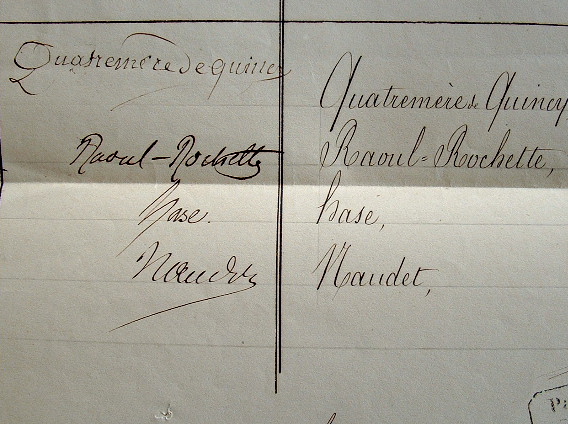 Quatremère de Quincy
Quatremère de Quincy
Raoul-Rochette
Raoul=Rochette,
hase.
hase,
Naudet
Naudet,